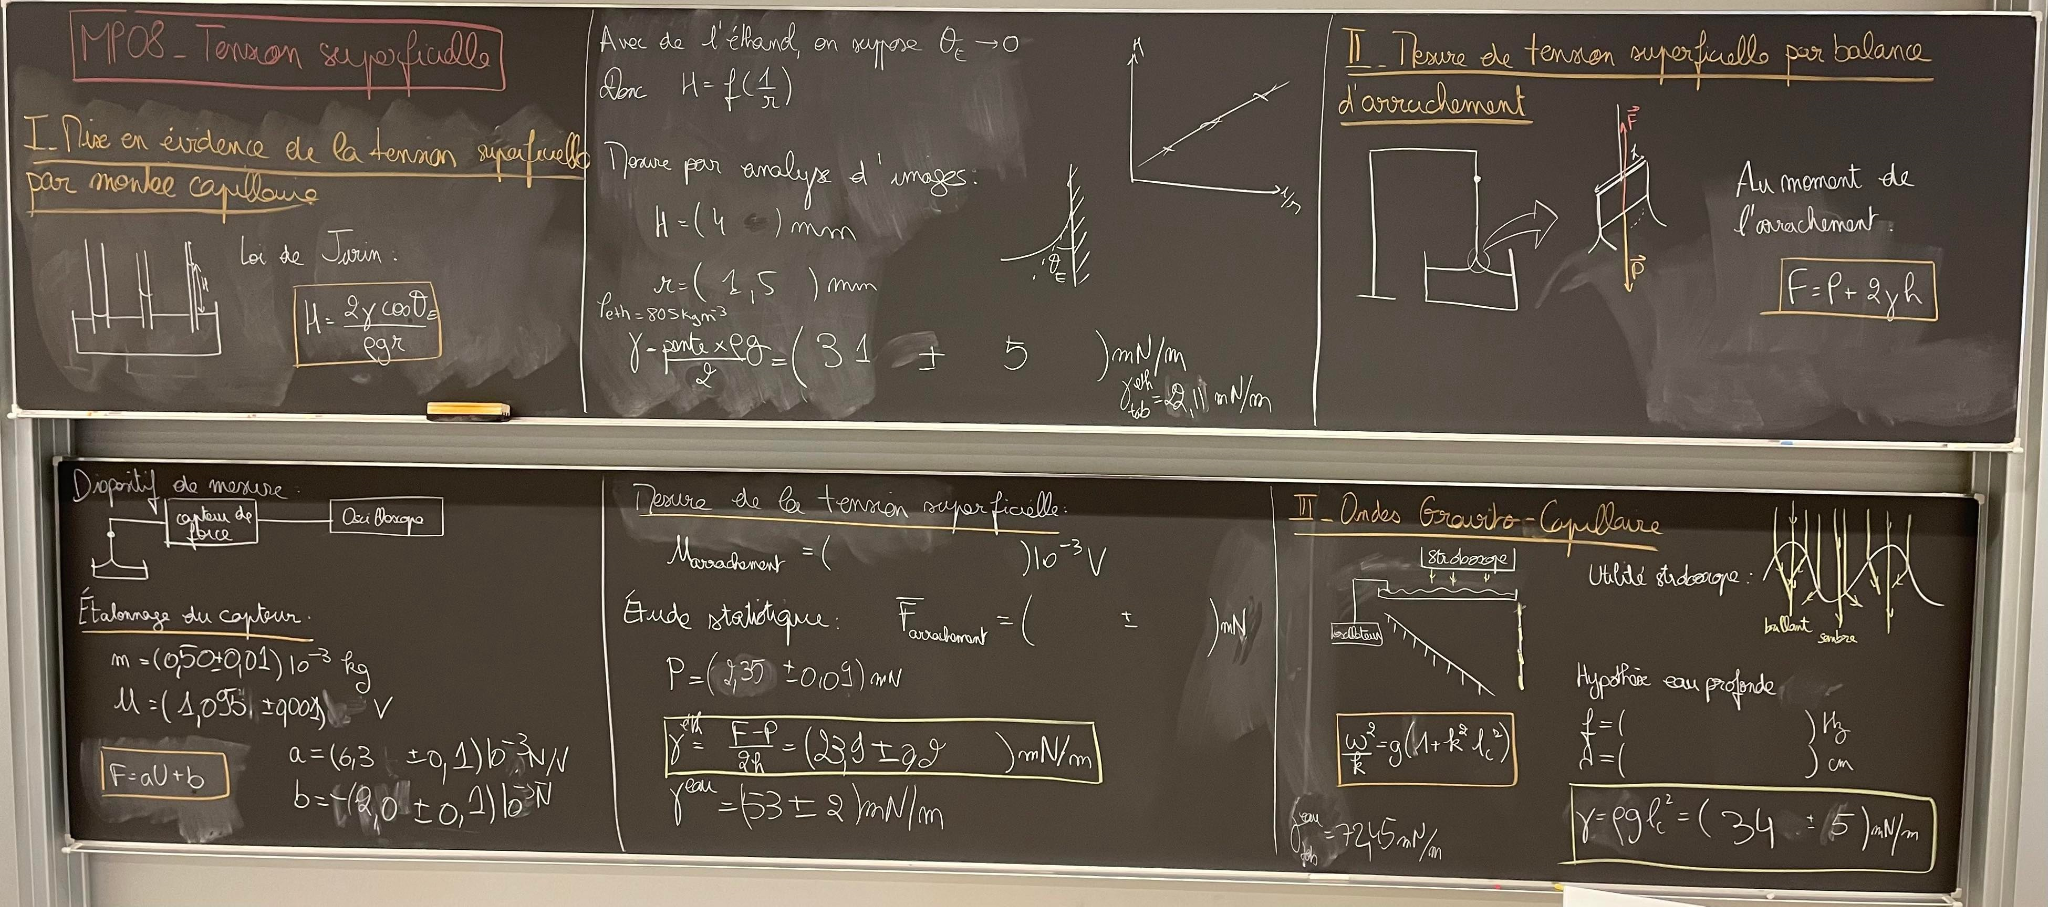 MP08 - Tension superficielle
I - Mise en évidence de la tension superficielle
par montée capillaire
H
Loi de Jurin :
H = 2γ cosθE / ρgr
Avec de l'éthanol, on suppose θE → 0
Donc H = f(1/r)
Mesure par analyse d'images :
H = ( 4 ) mm
r = ( 1,5 ) mm
ρeth = 805 kg m⁻³
γ = pente × ρg / 2 = ( 31 ± 5 ) mN/m
γ eth tab = 22,11 mN/m
H
1/r
θE
II - Mesure de tension superficielle par balance
d'arrachement
F
h
P
Au moment de
l'arrachement :
F = P + 2γh
Dispositif de mesure :
capteur de
force
Oscilloscope
Étalonnage du capteur :
m = (0,50 ± 0,01) 10⁻³ kg
U = (1,095 ± 0,001) V
F = aU + b
a = (6,3 ± 0,1) 10⁻³ N/V
b = -(2,0 ± 0,1) 10⁻³ N
Mesure de la tension superficielle :
Uarrachement = ( ) 10⁻³ V
Étude statistique : F̄arrachement = ( ± ) mN
P = (2,35 ± 0,09) mN
γ éth = F-P / 2h = (23,9 ± 0,2 ) mN/m
γ eau = (53 ± 2) mN/m
III - Ondes Gravito-Capillaire
Stroboscope
Utilité stroboscope :
brillant
sombre
ω²/k = g(1 + k² lc²)
Hypothèse eau profonde
f = ( ) Hz
λ = ( ) cm
γ eau tab = 72,45 mN/m
γ = ρg lc² = ( 34 ± 5 ) mN/m